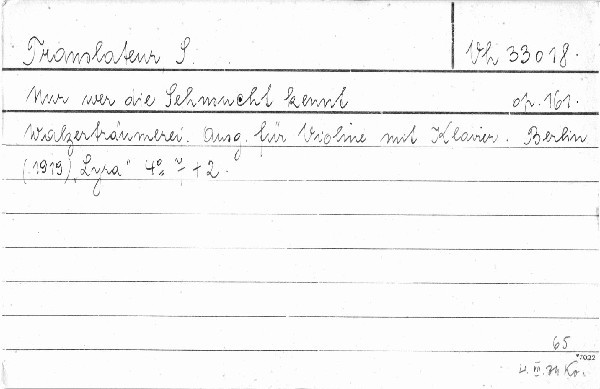 Translateur S.
Vh 33018.
Nur wer die Sehnsucht kennt op. 161.
Walzerträumerei. Ausg. für Violine mit Klavier. Berlin
(1919) "Lyra" 4° +2.
65
*7022
Ko.